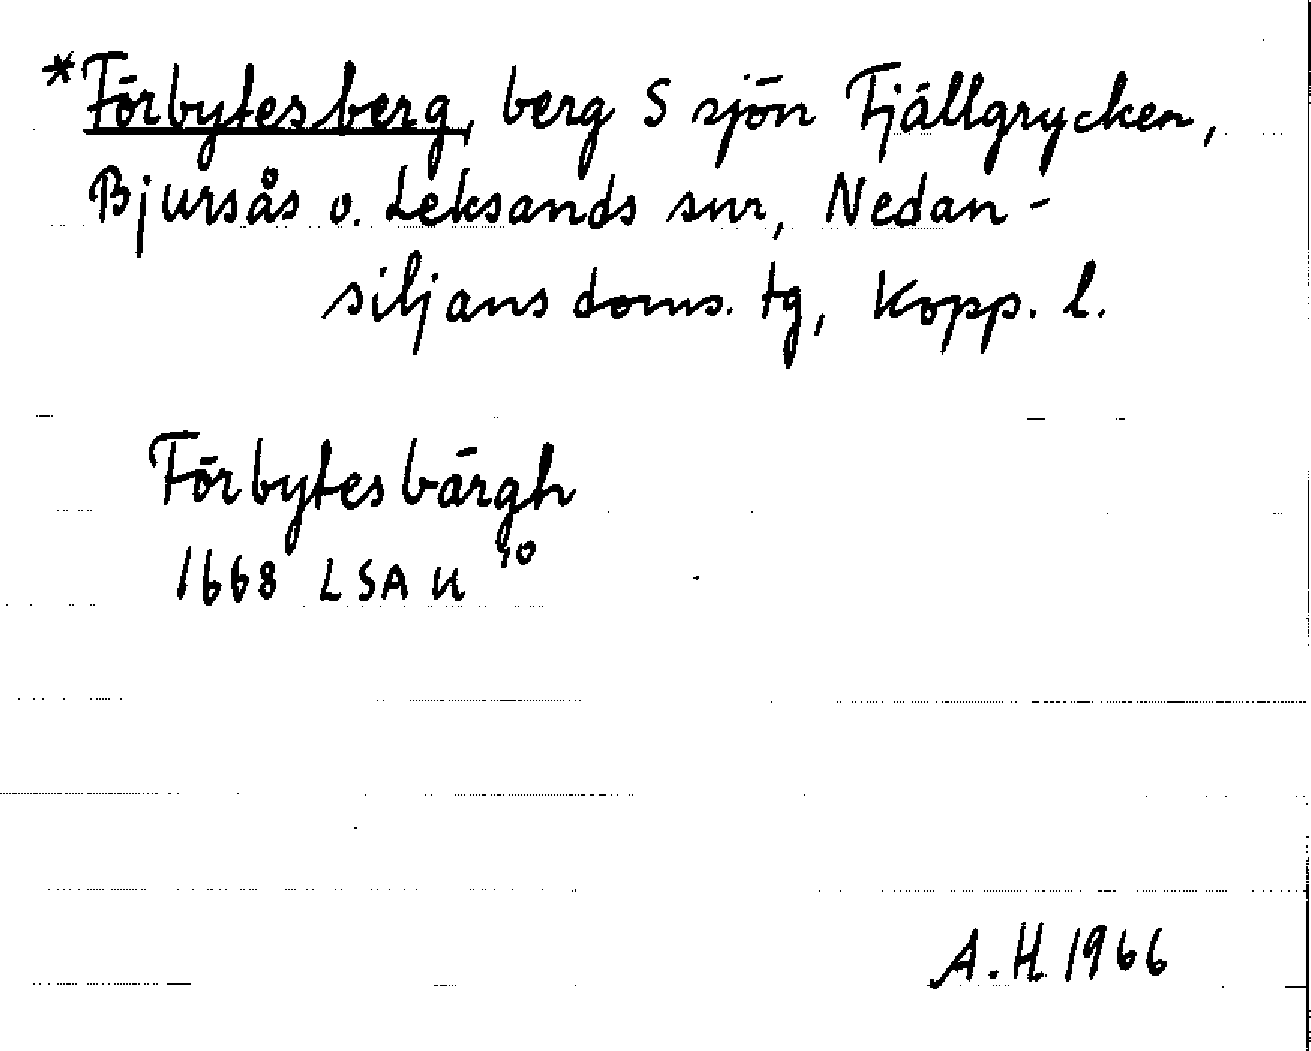 *Förbytesberg, berg S sjön Fjällgrycken,
Bjursås o. Leksands snr, Nedan-
siljans doms. tg, Kopp. l.
Förbytesbärgh
1668 LSA U 10
A.H 1966